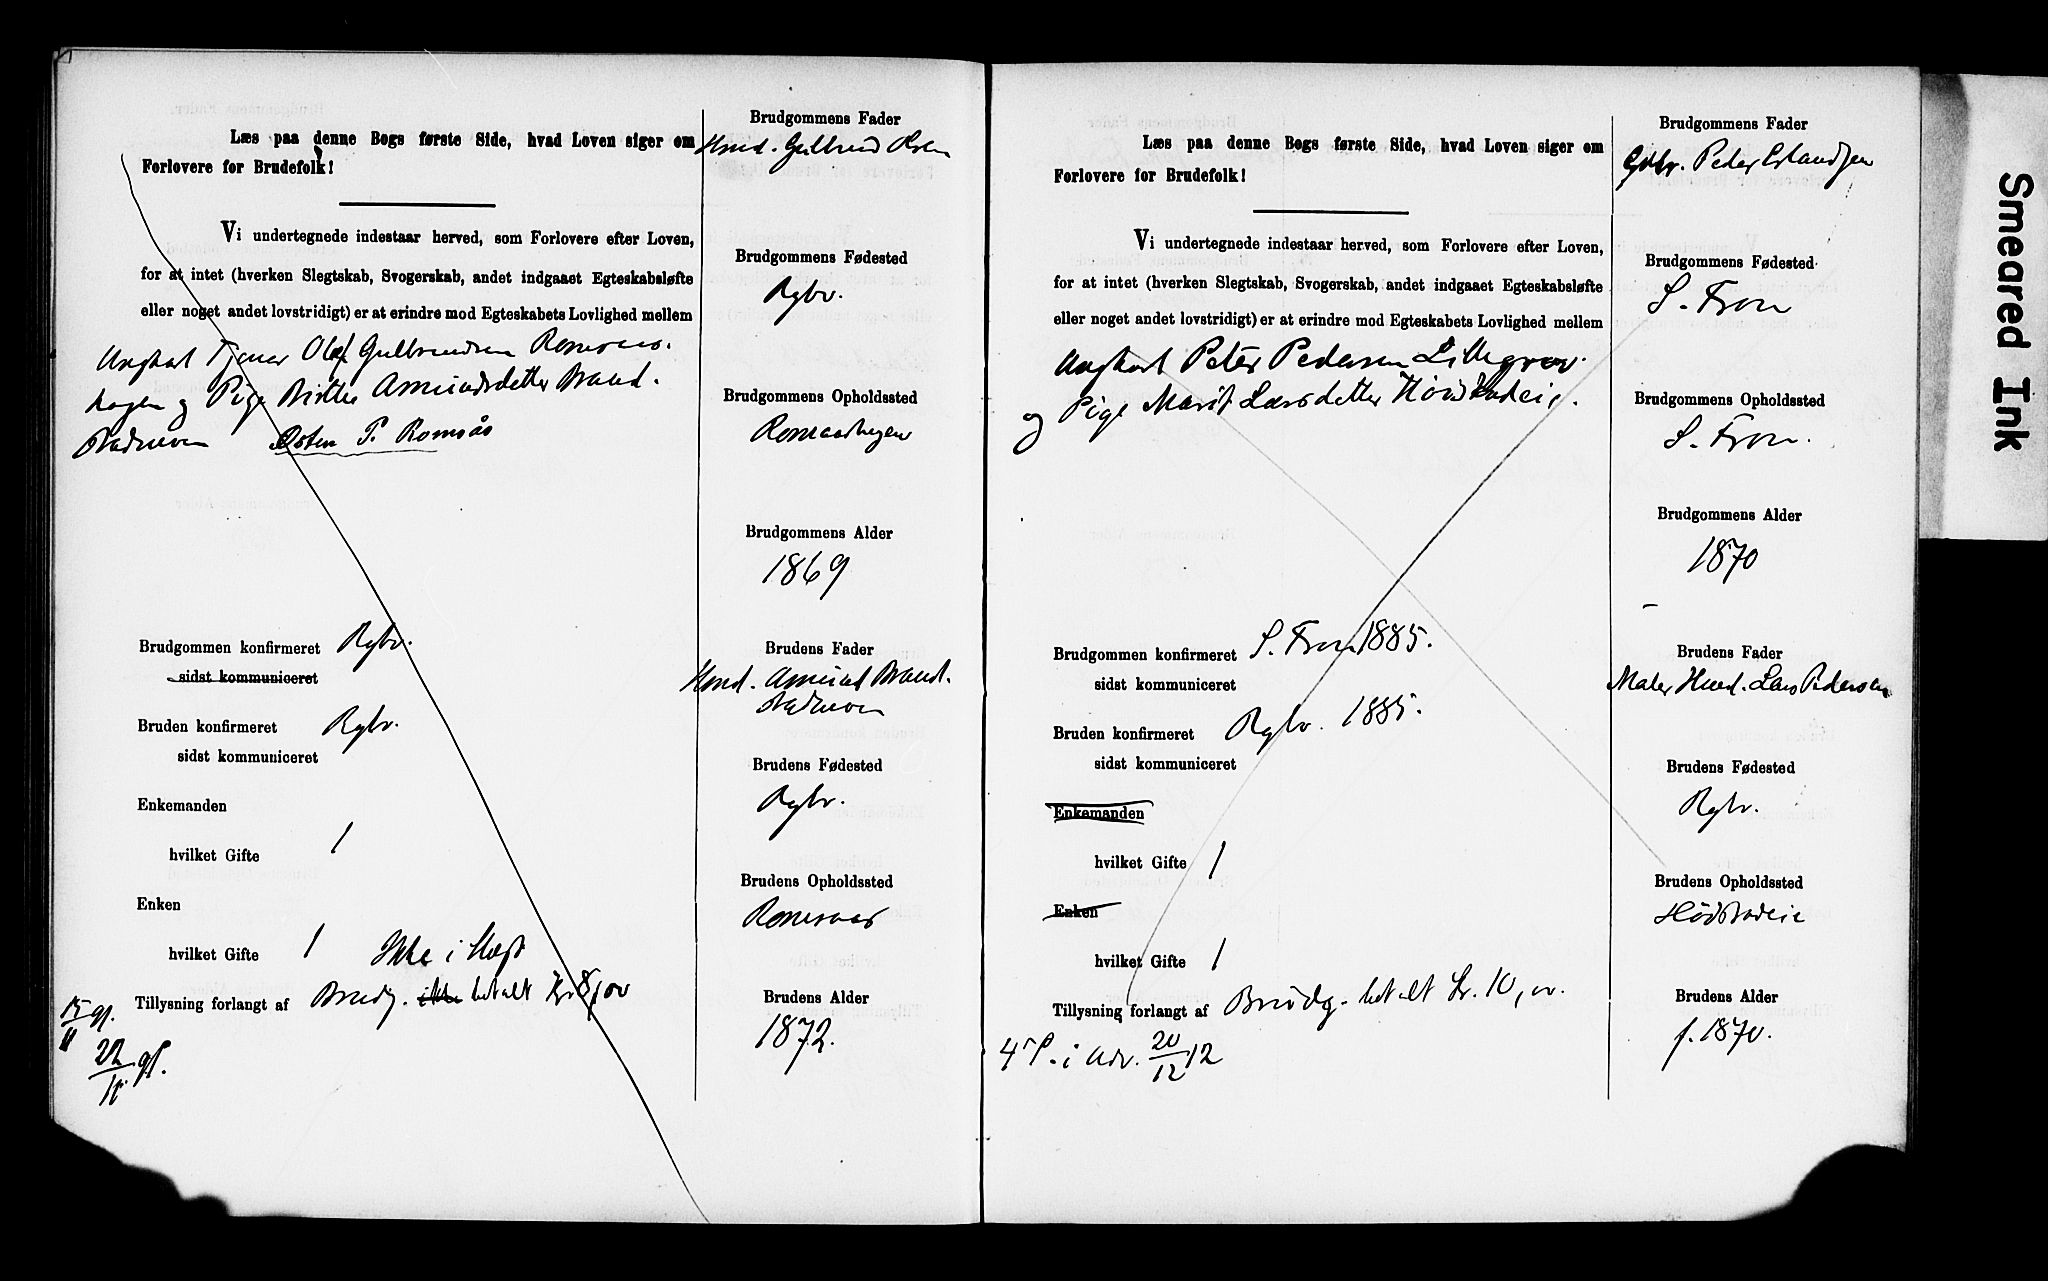 Læs paa denne Bogs første Side, hvad Loven siger om
Forlovere for Brudefolk!
Vi undertegnede indestaar herved, som Forlovere efter Loven,
for at intet (hverken Slegtskab, Svogerskab, andet indgaaet Egteskabsløfte
eller noget andet lovstridigt) er at erindre mod Egteskabets Lovlighed mellem
Ungkarl Tjener Olaf Gulbrandsen Romsaas.
hagen og Pige Birthe Amundsdatter Brand.
Østen P. Romsås
Brudgommen konfirmeret Rgbr.
sidst kommuniceret
Bruden konfirmeret Rgbr.
sidst kommuniceret
Enkemanden
hvilket Gifte 1
Enken
hvilket Gifte 1 Ikke i Slægt
Tillysning forlangt af Brudg. ikke betalt Kr 8,00
15/11 gf.
22/11 gf.
Brudgommens Fader
Husmd. Gulbrand Olsen
Brudgommens Fødested
Rgbr.
Brudgommens Opholdssted
Romsaashagen
Brudgommens Alder
1869
Brudens Fader
Husmd. Amund Brand.
Brudens Fødested
Rgbr.
Brudens Opholdssted
Romsaas
Brudens Alder
1872.
Læs paa denne Bogs første Side, hvad Loven siger om
Forlovere for Brudefolk!
Vi undertegnede indestaar herved, som Forlovere efter Loven,
for at intet (hverken Slegtskab, Svogerskab, andet indgaaet Egteskabsløfte
eller noget andet lovstridigt) er at erindre mod Egteskabets Lovlighed mellem
Ungkarl Peter Pedersen Lillegrav
og Pige Marit Larsdatter
Brudgommen konfirmeret S. Fron 1885.
sidst kommuniceret
Bruden konfirmeret Rgbr. 1885.
sidst kommuniceret
Enkemanden
hvilket Gifte 1
Enken
hvilket Gifte 1
Tillysning forlangt af Brudg. betalt Kr. 10,00.
4 S. i Adv. 20/12 12
Brudgommens Fader
Gdbr. Peter Erlandsen
Brudgommens Fødested
S. Fron
Brudgommens Opholdssted
S. Fron.
Brudgommens Alder
1870
Brudens Fader
Maler Husmd. Lars Pedersen
Brudens Fødested
Rgbr.
Brudens Opholdssted
Brudens Alder
f. 1870.
Smeared Ink